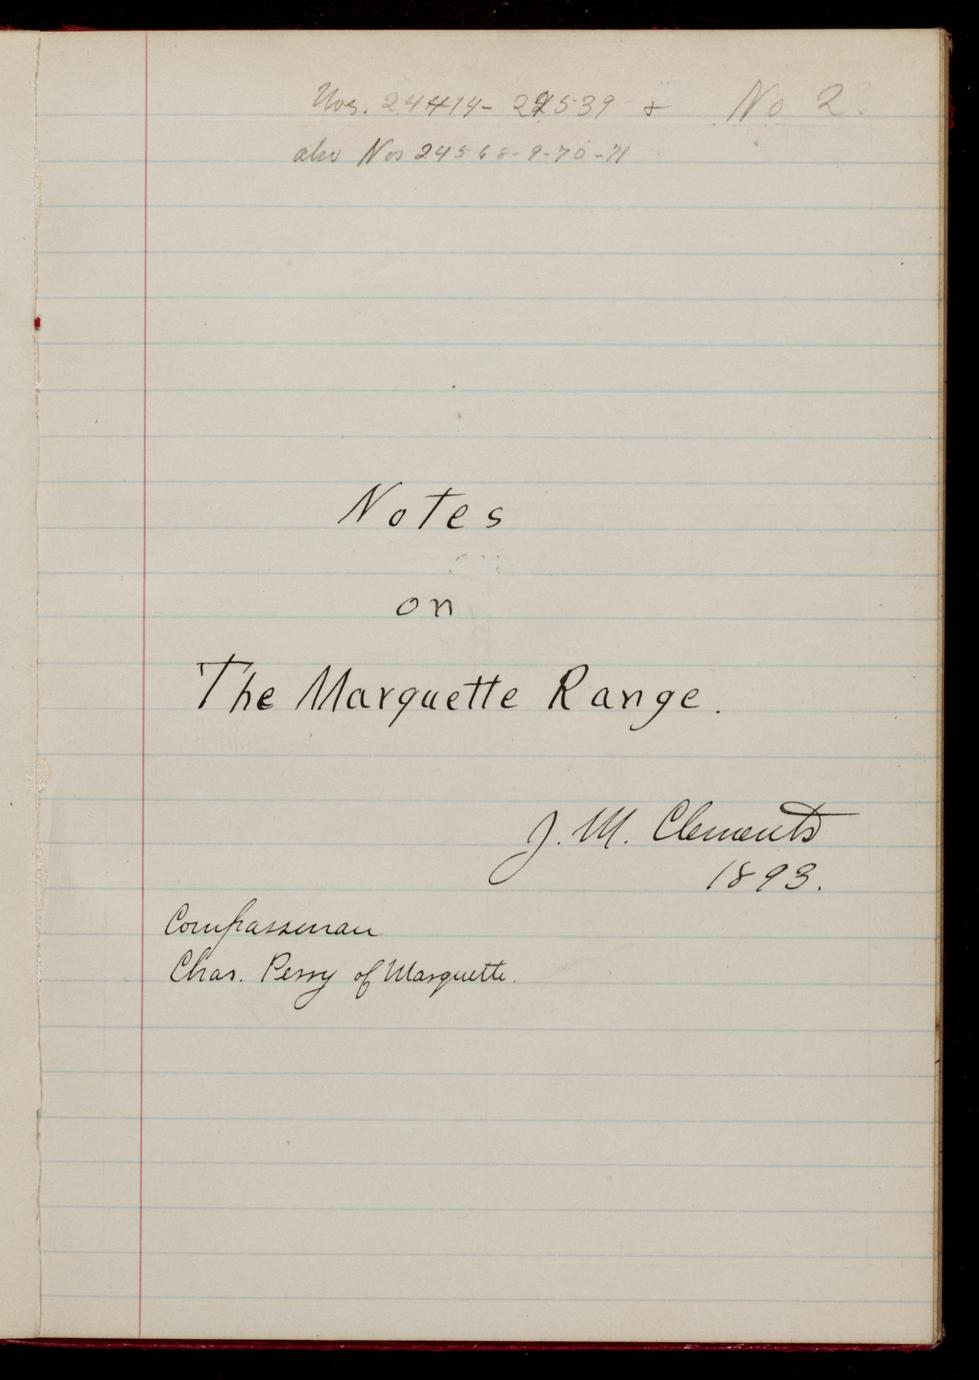 Nos. 24414- 24539 & No 2.
also Nos 24568-9-70-71
Notes
on
The Marquette Range.
J. M. Clements
1893.
Compassman
Chas. Perry of Marquette.